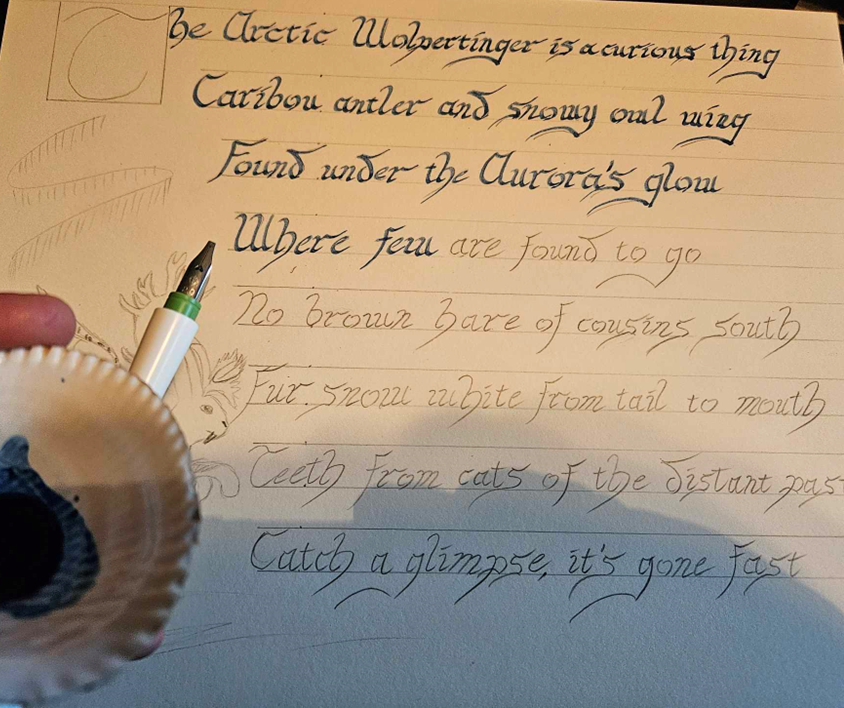 The Arctic Wolpertinger is a curious thing
Caribou antler and snowy owl wing
Found under the Aurora's glow
Where few are found to go
No brown hare of cousins south
Fur snow white from tail to mouth
Teeth from cats of the distant past
Catch a glimpse, it's gone fast